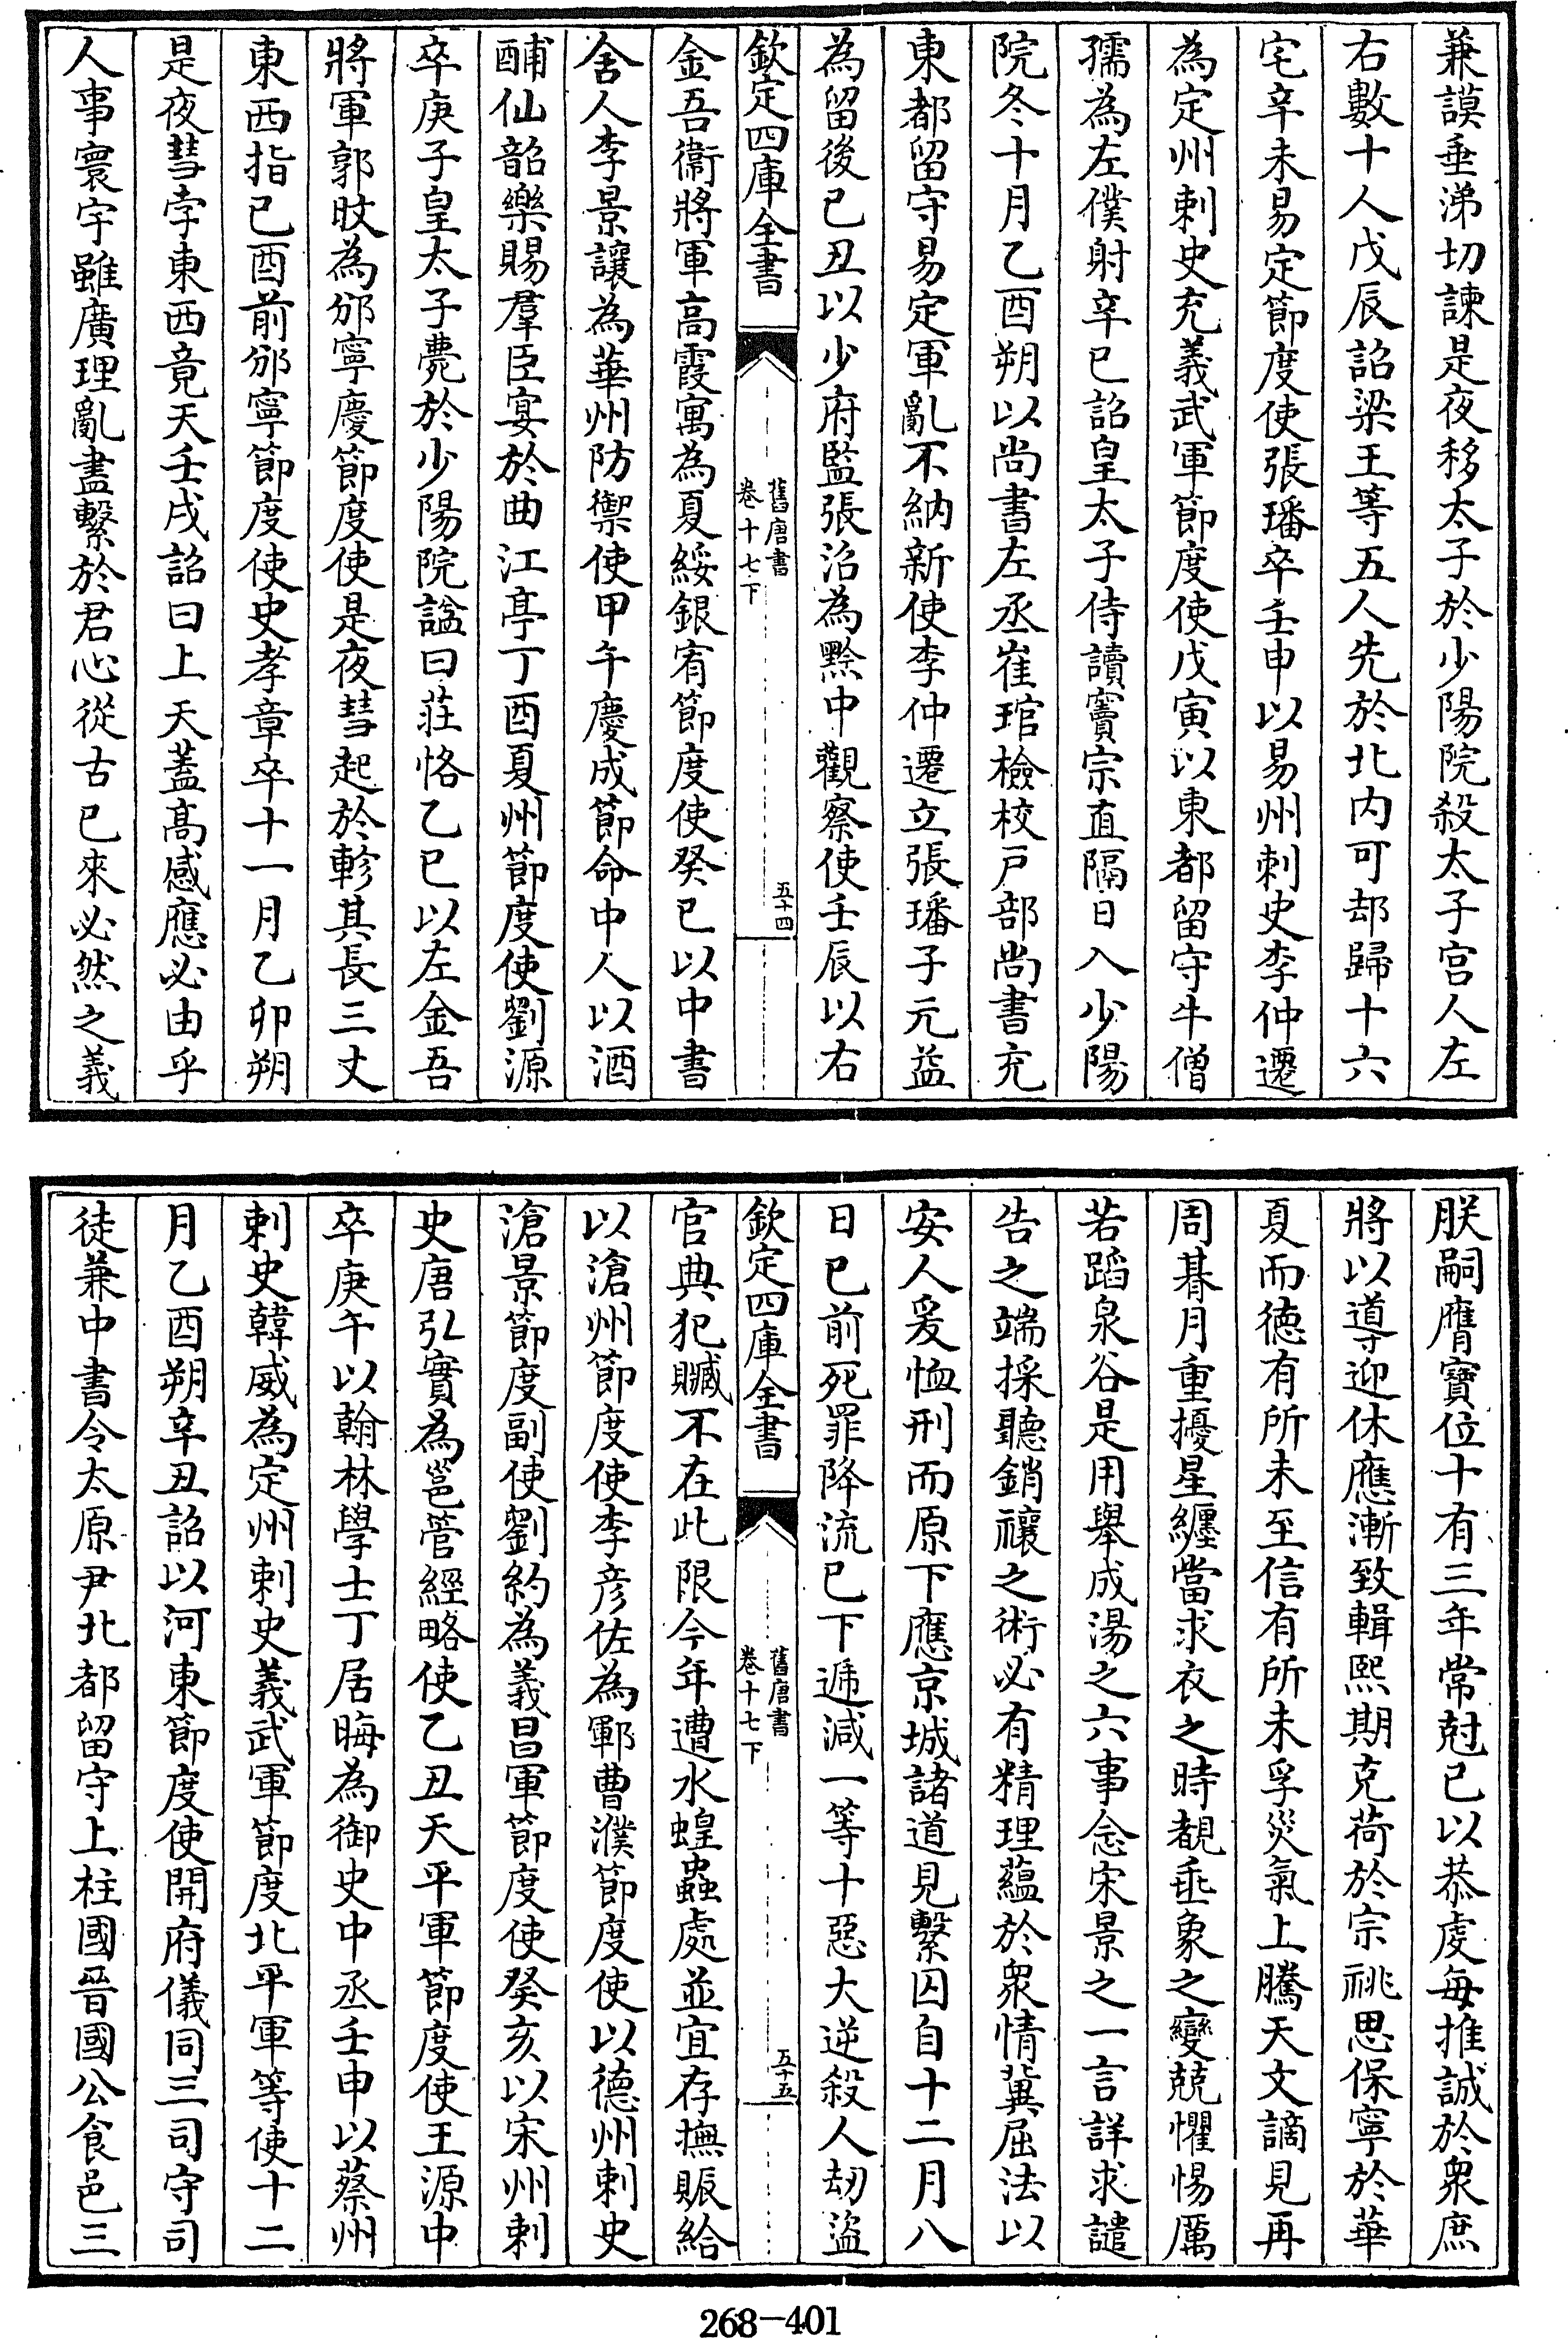 兼謨垂涕切諫是夜移太子於少陽院殺太子宮人左
右數十人戊辰詔梁王等五人先於北内可却歸十六
宅辛未易定節度使張璠卒壬申以易州刺史李仲遷
為定州刺史充義武軍節度使戊寅以東都留守牛僧
孺為左僕射辛巳詔皇太子侍讀竇宗直隔日入少陽
院冬十月乙酉朔以尚書左丞崔琯檢校戸部尚書充
東都留守易定軍亂不納新使李仲遷立張璠子元益
為留後己丑以少府監張沼為黔中觀察使壬辰以右
欽定四庫全書
舊唐書
卷十七下
五十四
金吾衞將軍高霞寓為夏綏銀宥節度使癸巳以中書
舍人李景讓為華州防禦使甲午慶成節命中人以酒
酺仙韶樂賜羣臣宴於曲江亭丁酉夏州節度使劉源
卒庚子皇太子薨於少陽院諡曰莊恪乙巳以左金吾
將軍郭旼為邠寧慶節度使是夜彗起於軫其長三丈
東西指己酉前邠寧節度使史孝章卒十一月乙卯朔
是夜彗孛東西竟天壬戌詔曰上天蓋高感應必由乎
人事寰宇雖廣理亂盡繫於君心從古已來必然之義
朕嗣膺寶位十有三年常尅己以恭虔每推誠於衆庶
將以導迎休應漸致輯熙期克荷於宗祧思保寧於華
夏而徳有所未至信有所未孚災氣上騰天文謫見再
周朞月重擾星纏當求衣之時覩垂象之變兢懼惕厲
若蹈泉谷是用舉成湯之六事念宋景之一言詳求譴
告之端採聽銷禳之術必有精理藴於衆情冀屈法以
安人爰恤刑而原下應京城諸道見繫囚自十二月八
日已前死罪降流已下遞減一等十惡大逆殺人刼盜
欽定四庫全書
舊唐書
卷十七下
五十五
官典犯贓不在此限今年遭水蝗蟲處並宜存撫賑給
以滄州節度使李彦佐為鄆曹濮節度使以德州刺史
滄景節度副使劉約為義昌軍節度使癸亥以宋州刺
史唐弘實為邕管經略使乙丑天平軍節度使王源中
卒庚午以翰林學士丁居晦為御史中丞壬申以蔡州
刺史韓威為定州刺史義武軍節度北平軍等使十二
月乙酉朔辛丑詔以河東節度使開府儀同三司守司
徒兼中書令太原尹北都留守上柱國晉國公食邑三
268-401